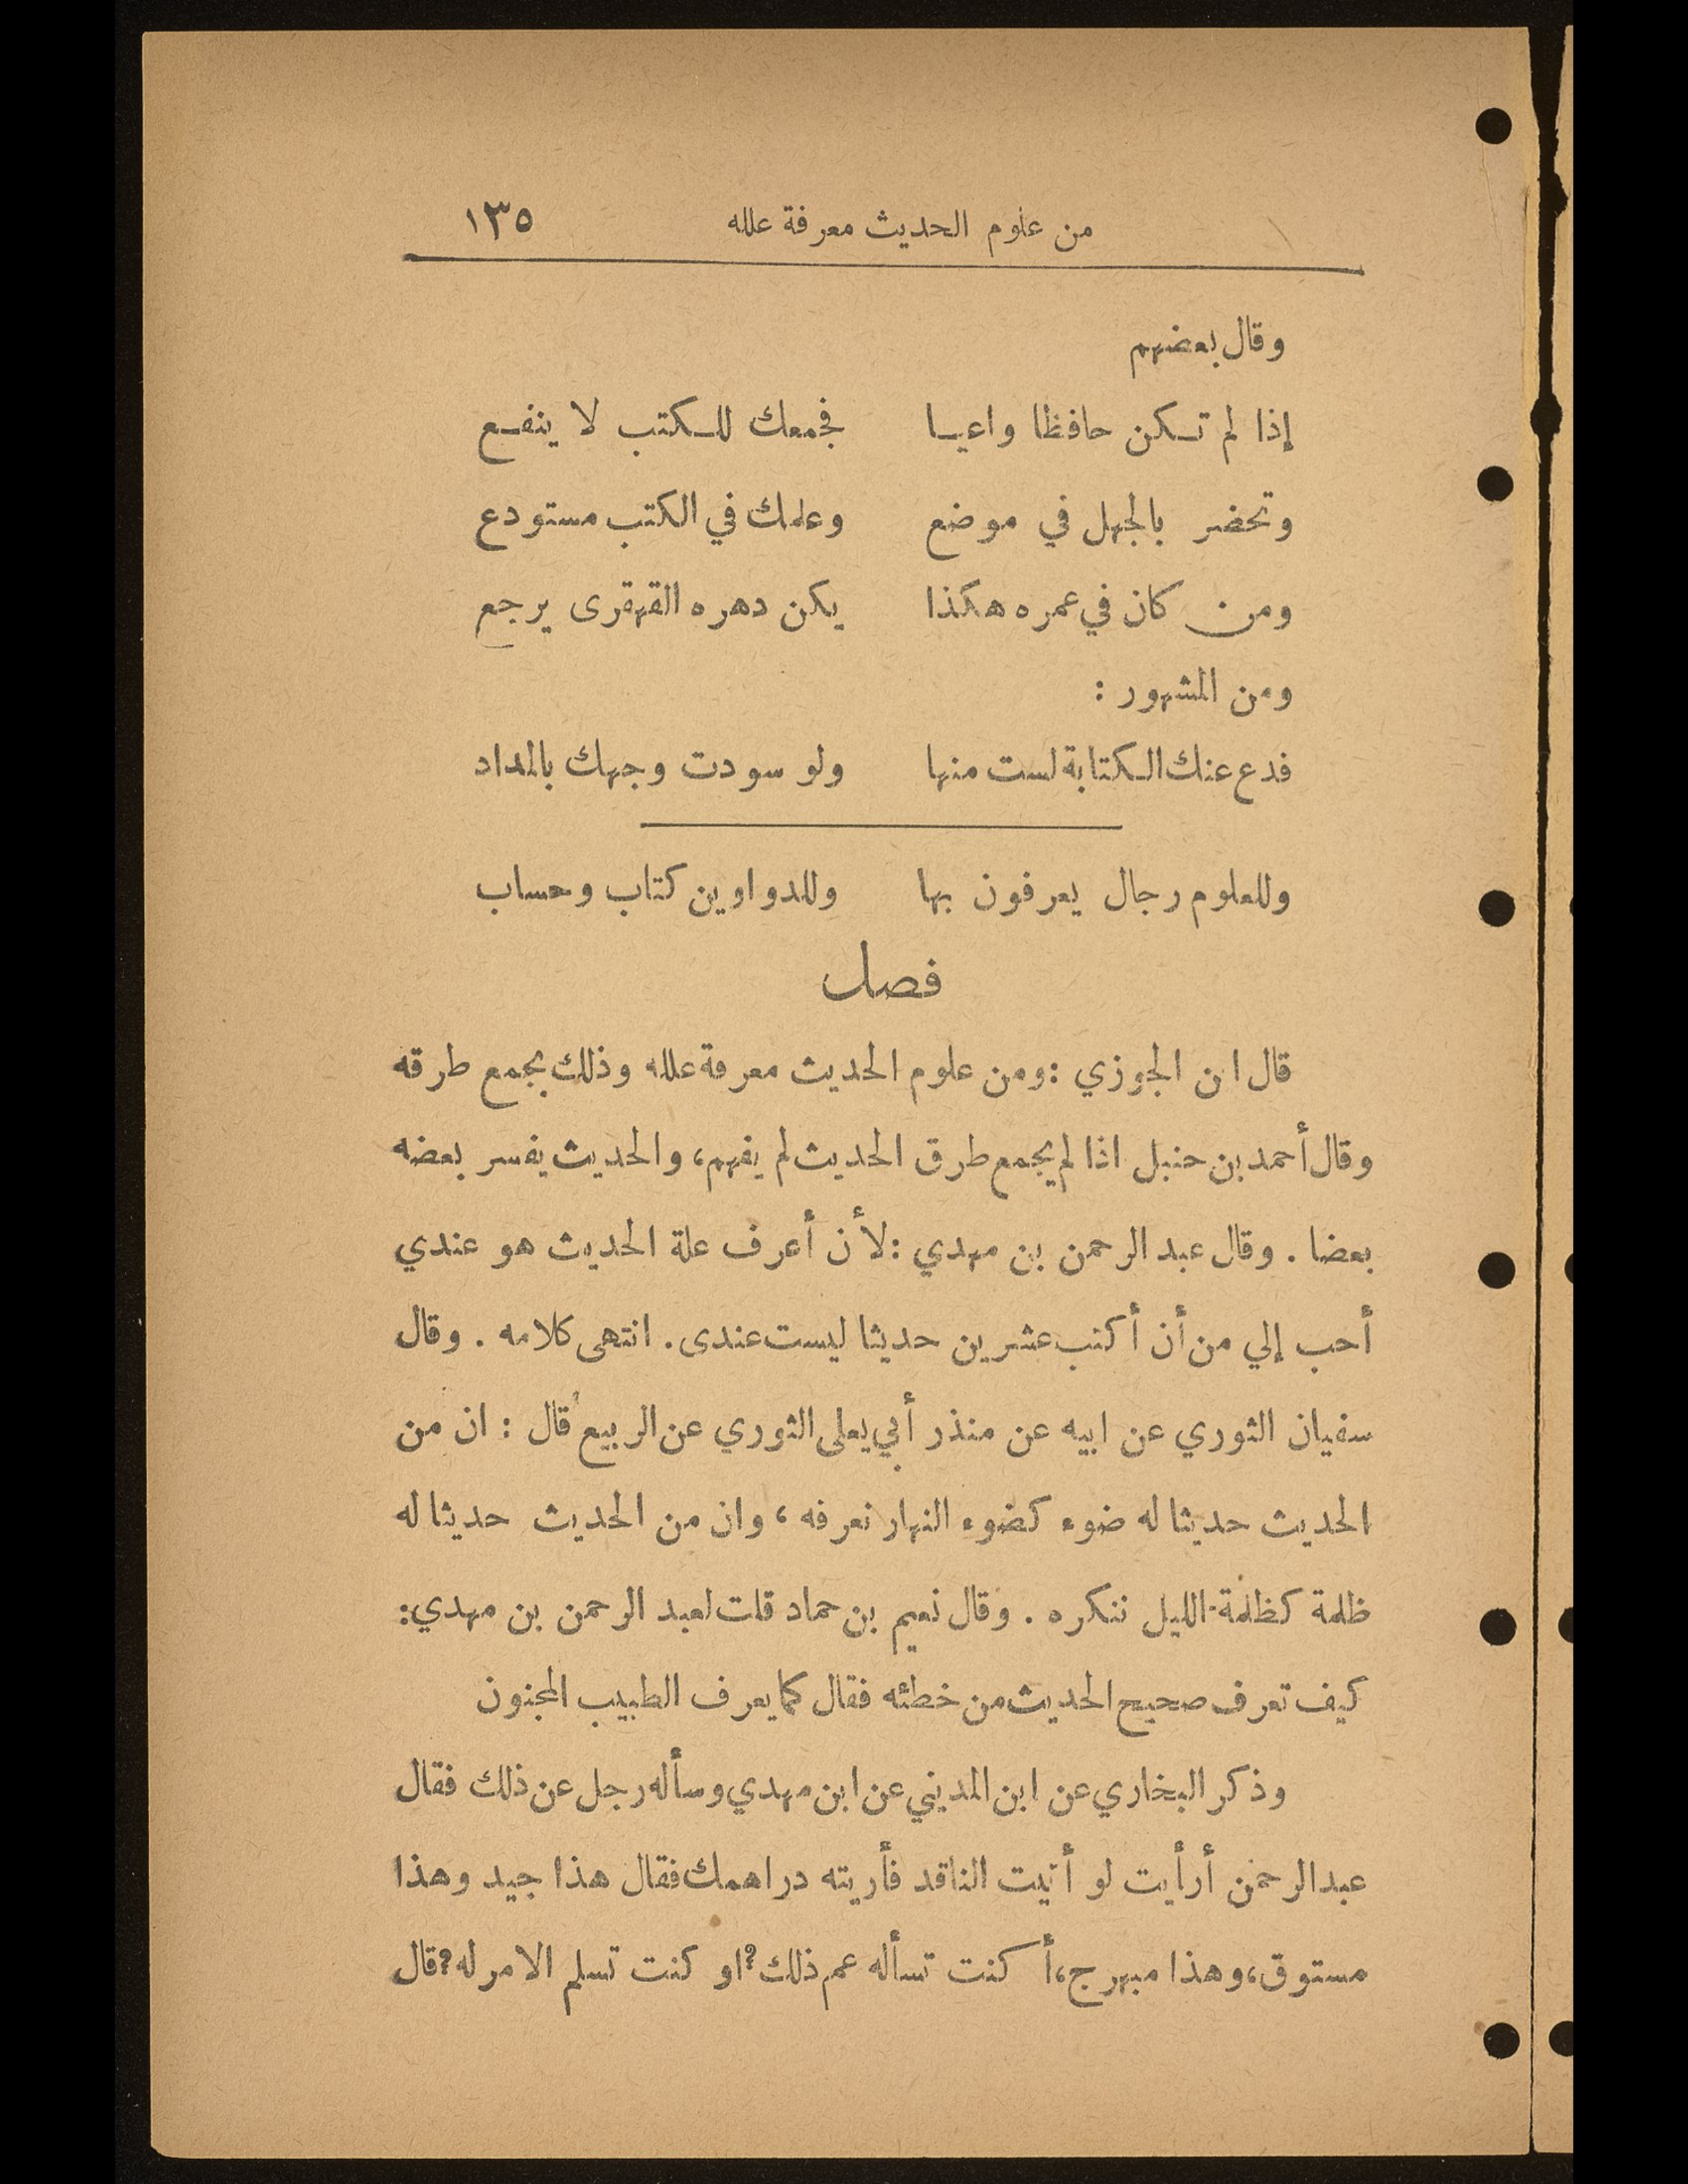 من علوم الحديث معرفة علله ١٣٥
وقال بعضهم
إذا لم تكن حافظا واعيا فجمعك للكتب لا ينفع
وتحضر بالجهل في موضع وعلمك في الكتب مستودع
ومن كان في عمره هكذا يكن دهره القهقرى يرجع
ومن المشهور :
فدع عنك الكتابة لست منها ولو سودت وجهك بالمداد
وللعلوم رجال يعرفون بها وللدواوين كتاب وحساب
فصل
قال ابن الجوزي : ومن علوم الحديث معرفة علله وذلك بجمع طرقه
وقال أحمد بن حنبل اذا لم يجمع طرق الحديث لم يفهم، والحديث يفسر بعضه
بعضا . وقال عبد الرحمن بن مهدي : لأن أعرف علة الحديث هو عندي
أحب إلي من أن أكتب عشرين حديثا ليست عندى . انتهى كلامه . وقال
سفيان الثوري عن ابيه عن منذر أبي يعلى الثوري عن الربيع قال : ان من
الحديث حديثا له ضوء كضوء النهار نعرفه ، وان من الحديث حديثا له
ظلمة كظلمة الليل ننكره . وقال نعيم بن حماد قلت لعبد الرحمن بن مهدي :
كيف تعرف صحيح الحديث من خطئه فقال كما يعرف الطبيب المجنون
وذكر البخاري عن ابن المديني عن ابن مهدي وسأله رجل عن ذلك فقال
عبد الرحمن أرأيت لو أتيت الناقد فأريته دراهمك فقال هذا جيد وهذا
مستوق، وهذا مبهرج، أكنت تسأله عم ذلك؟ او كنت تسلم الامر له؟ قال